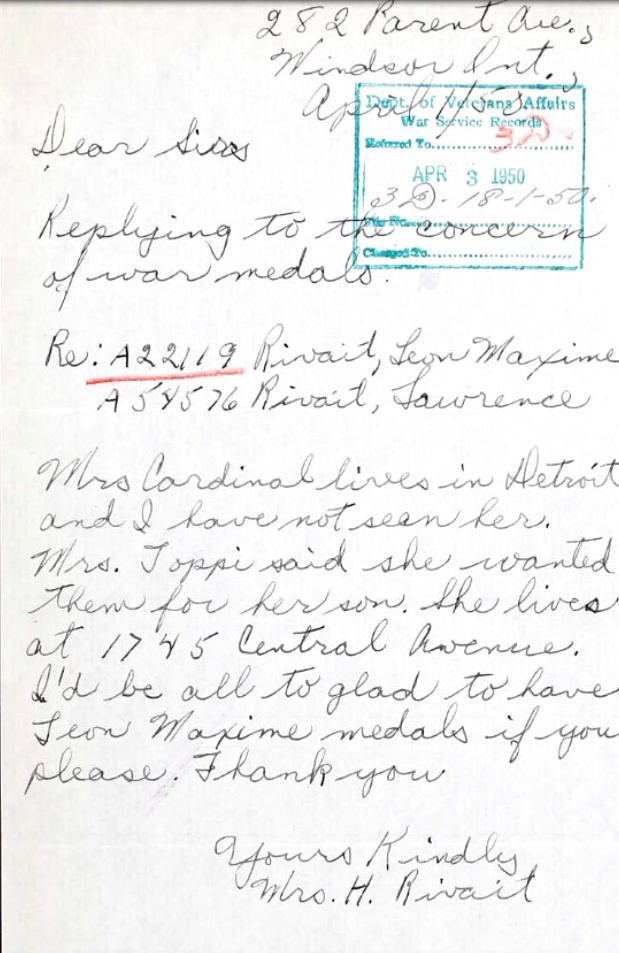 282 Parent Ave.,
Windsor Ont.,
April 1/50
Dept. of Veterans Affairs
War Service Records
Referred To
3D.
APR 3 1950
3D. 18-1-50.
File No.
Charged To
Dear Sirs
Replying to the concern
of war medals.
Re: A22119 Rivait, Leon Maxime
A54576 Rivait, Lawrence
Mrs Cardinal lives in Detroit
and I have not seen her.
Mrs. Toppi said she wanted
them for her son. She lives
at 1745 Central Avenue.
I'd be all to glad to have
Leon Maxime medals if you
please. Thank you
Yours Kindly
Mrs. H. Rivait